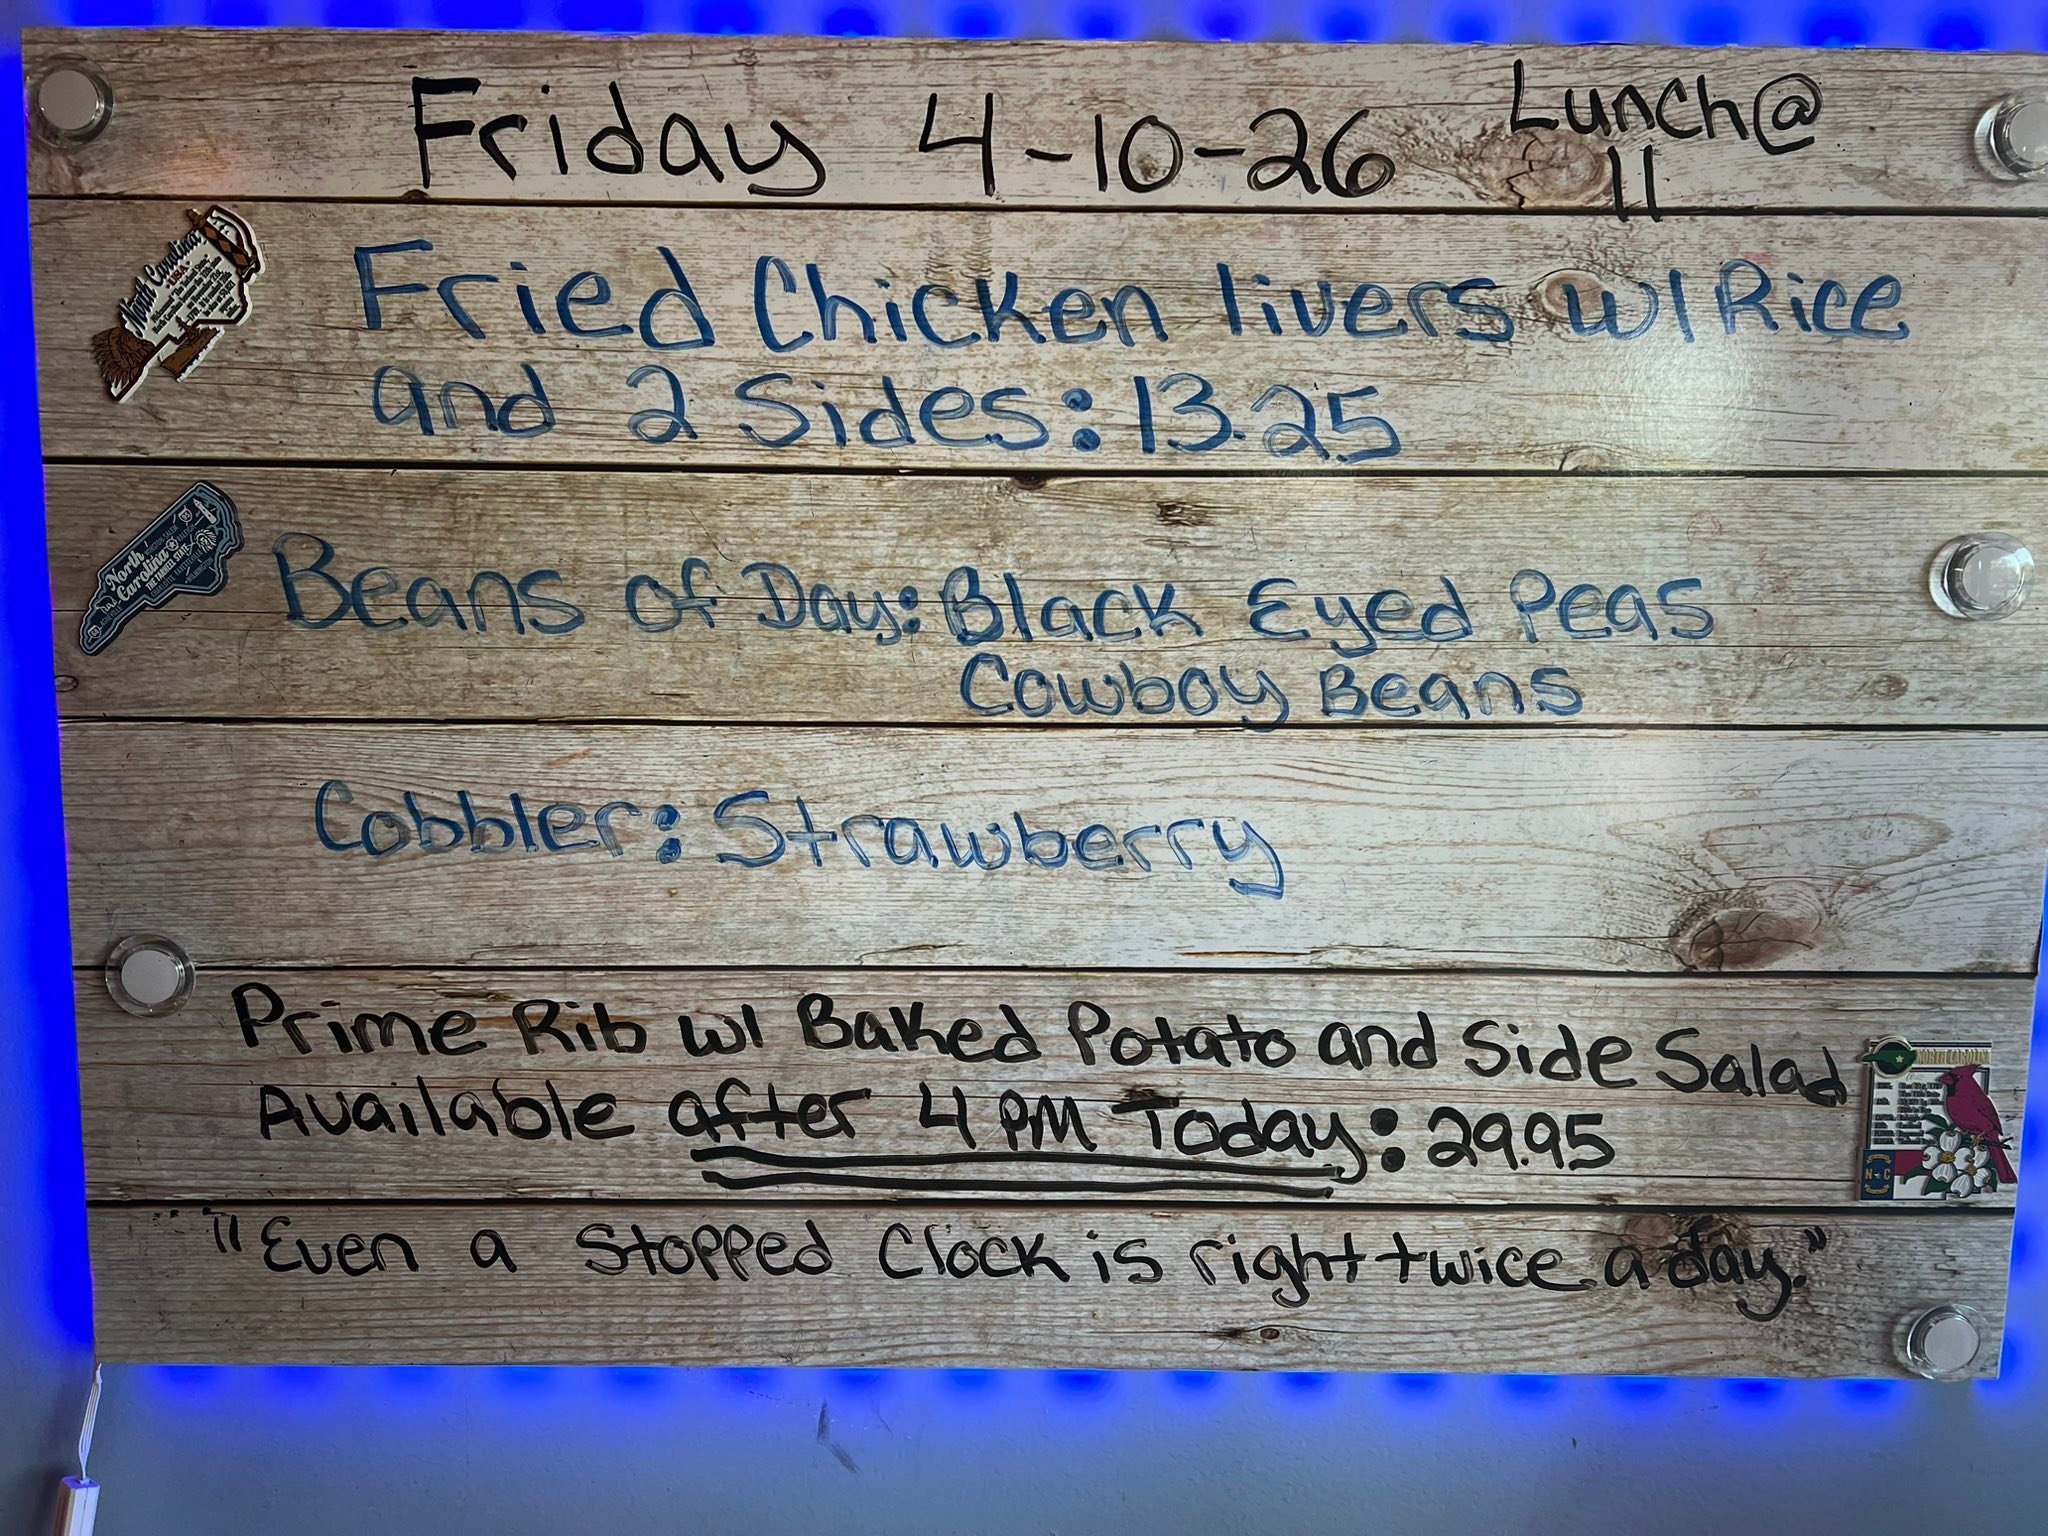 Friday 4-10-26 Lunch@
11
Fried Chicken livers w/ Rice
and 2 Sides: 13.25
Beans of Day: Black Eyed Peas
Cowboy Beans
Cobbler: Strawberry
Prime Rib w/ Baked Potato and Side Salad
Available after 4 PM Today: 29.95
"Even a Stopped Clock is right twice a day."
North Carolina
USA
North
Carolina
THE TARHEEL STATE
NORTH CAROLINA
N C